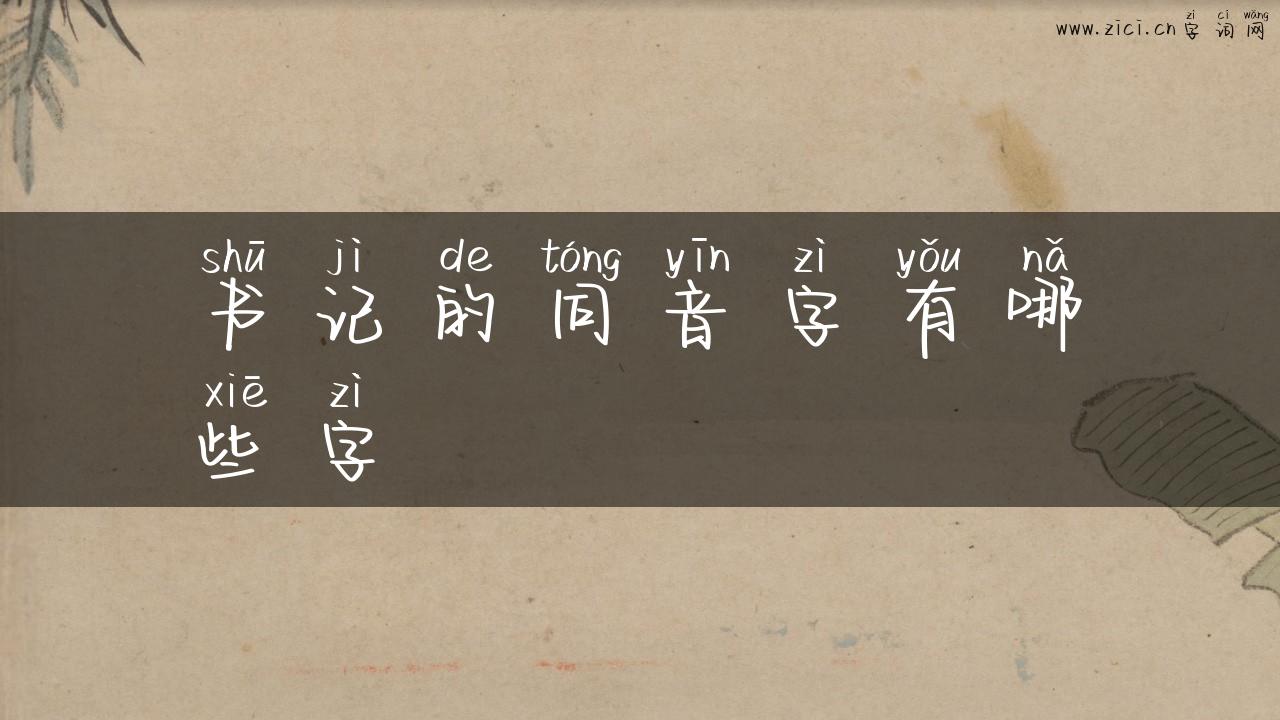 zì cí wǎng
www.zici.cn 字词网
shū jì de tóng yīn zì yǒu nǎ
书记的同音字有哪
xiē zì
些字